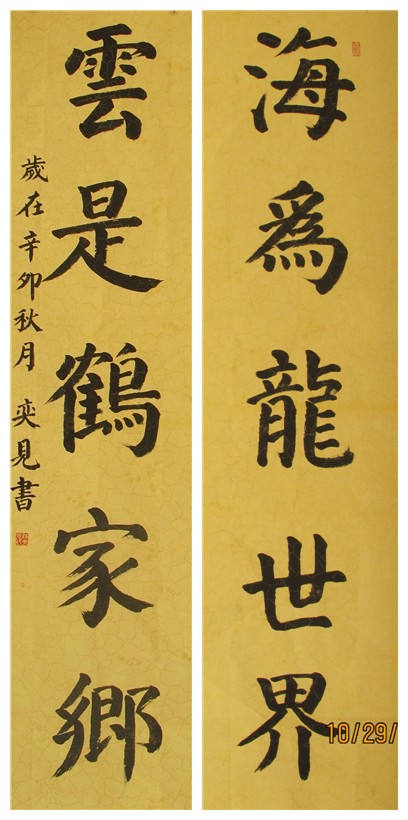 海爲龍世界
雲是鶴家鄉
歲在辛卯秋月 奕見書
10/29/